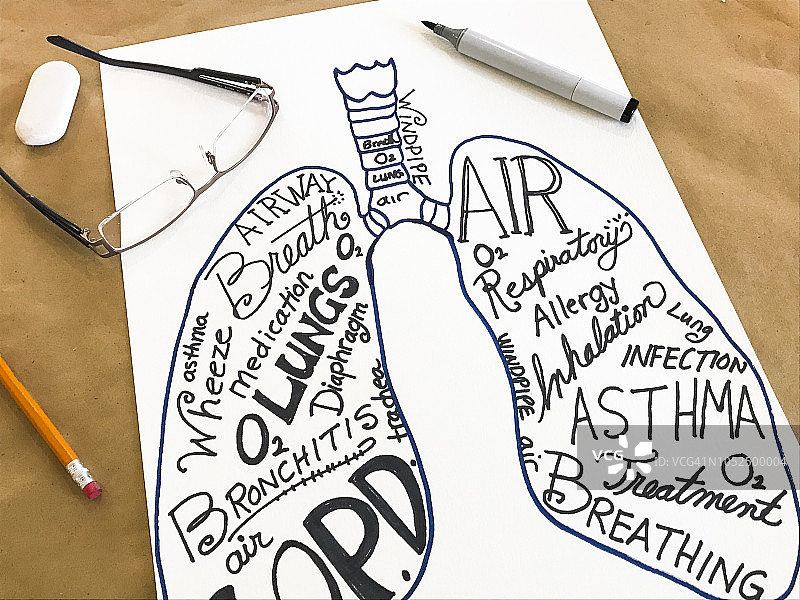 Breath
O2
LUNG
air
WINDPIPE
AIRWAY
Breath
O2
asthma
Wheeze
Medication
LUNGS
O2
Diaphragm
trachea
BRONCHITIS
air
COPD.
AIR
O2
Respiratory
Allergy
Inhalation
Lung
INFECTION
WINDPIPE
ASTHMA
air
O2
Treatment
BREATHING
VCG
ID: VCG41N1052500004